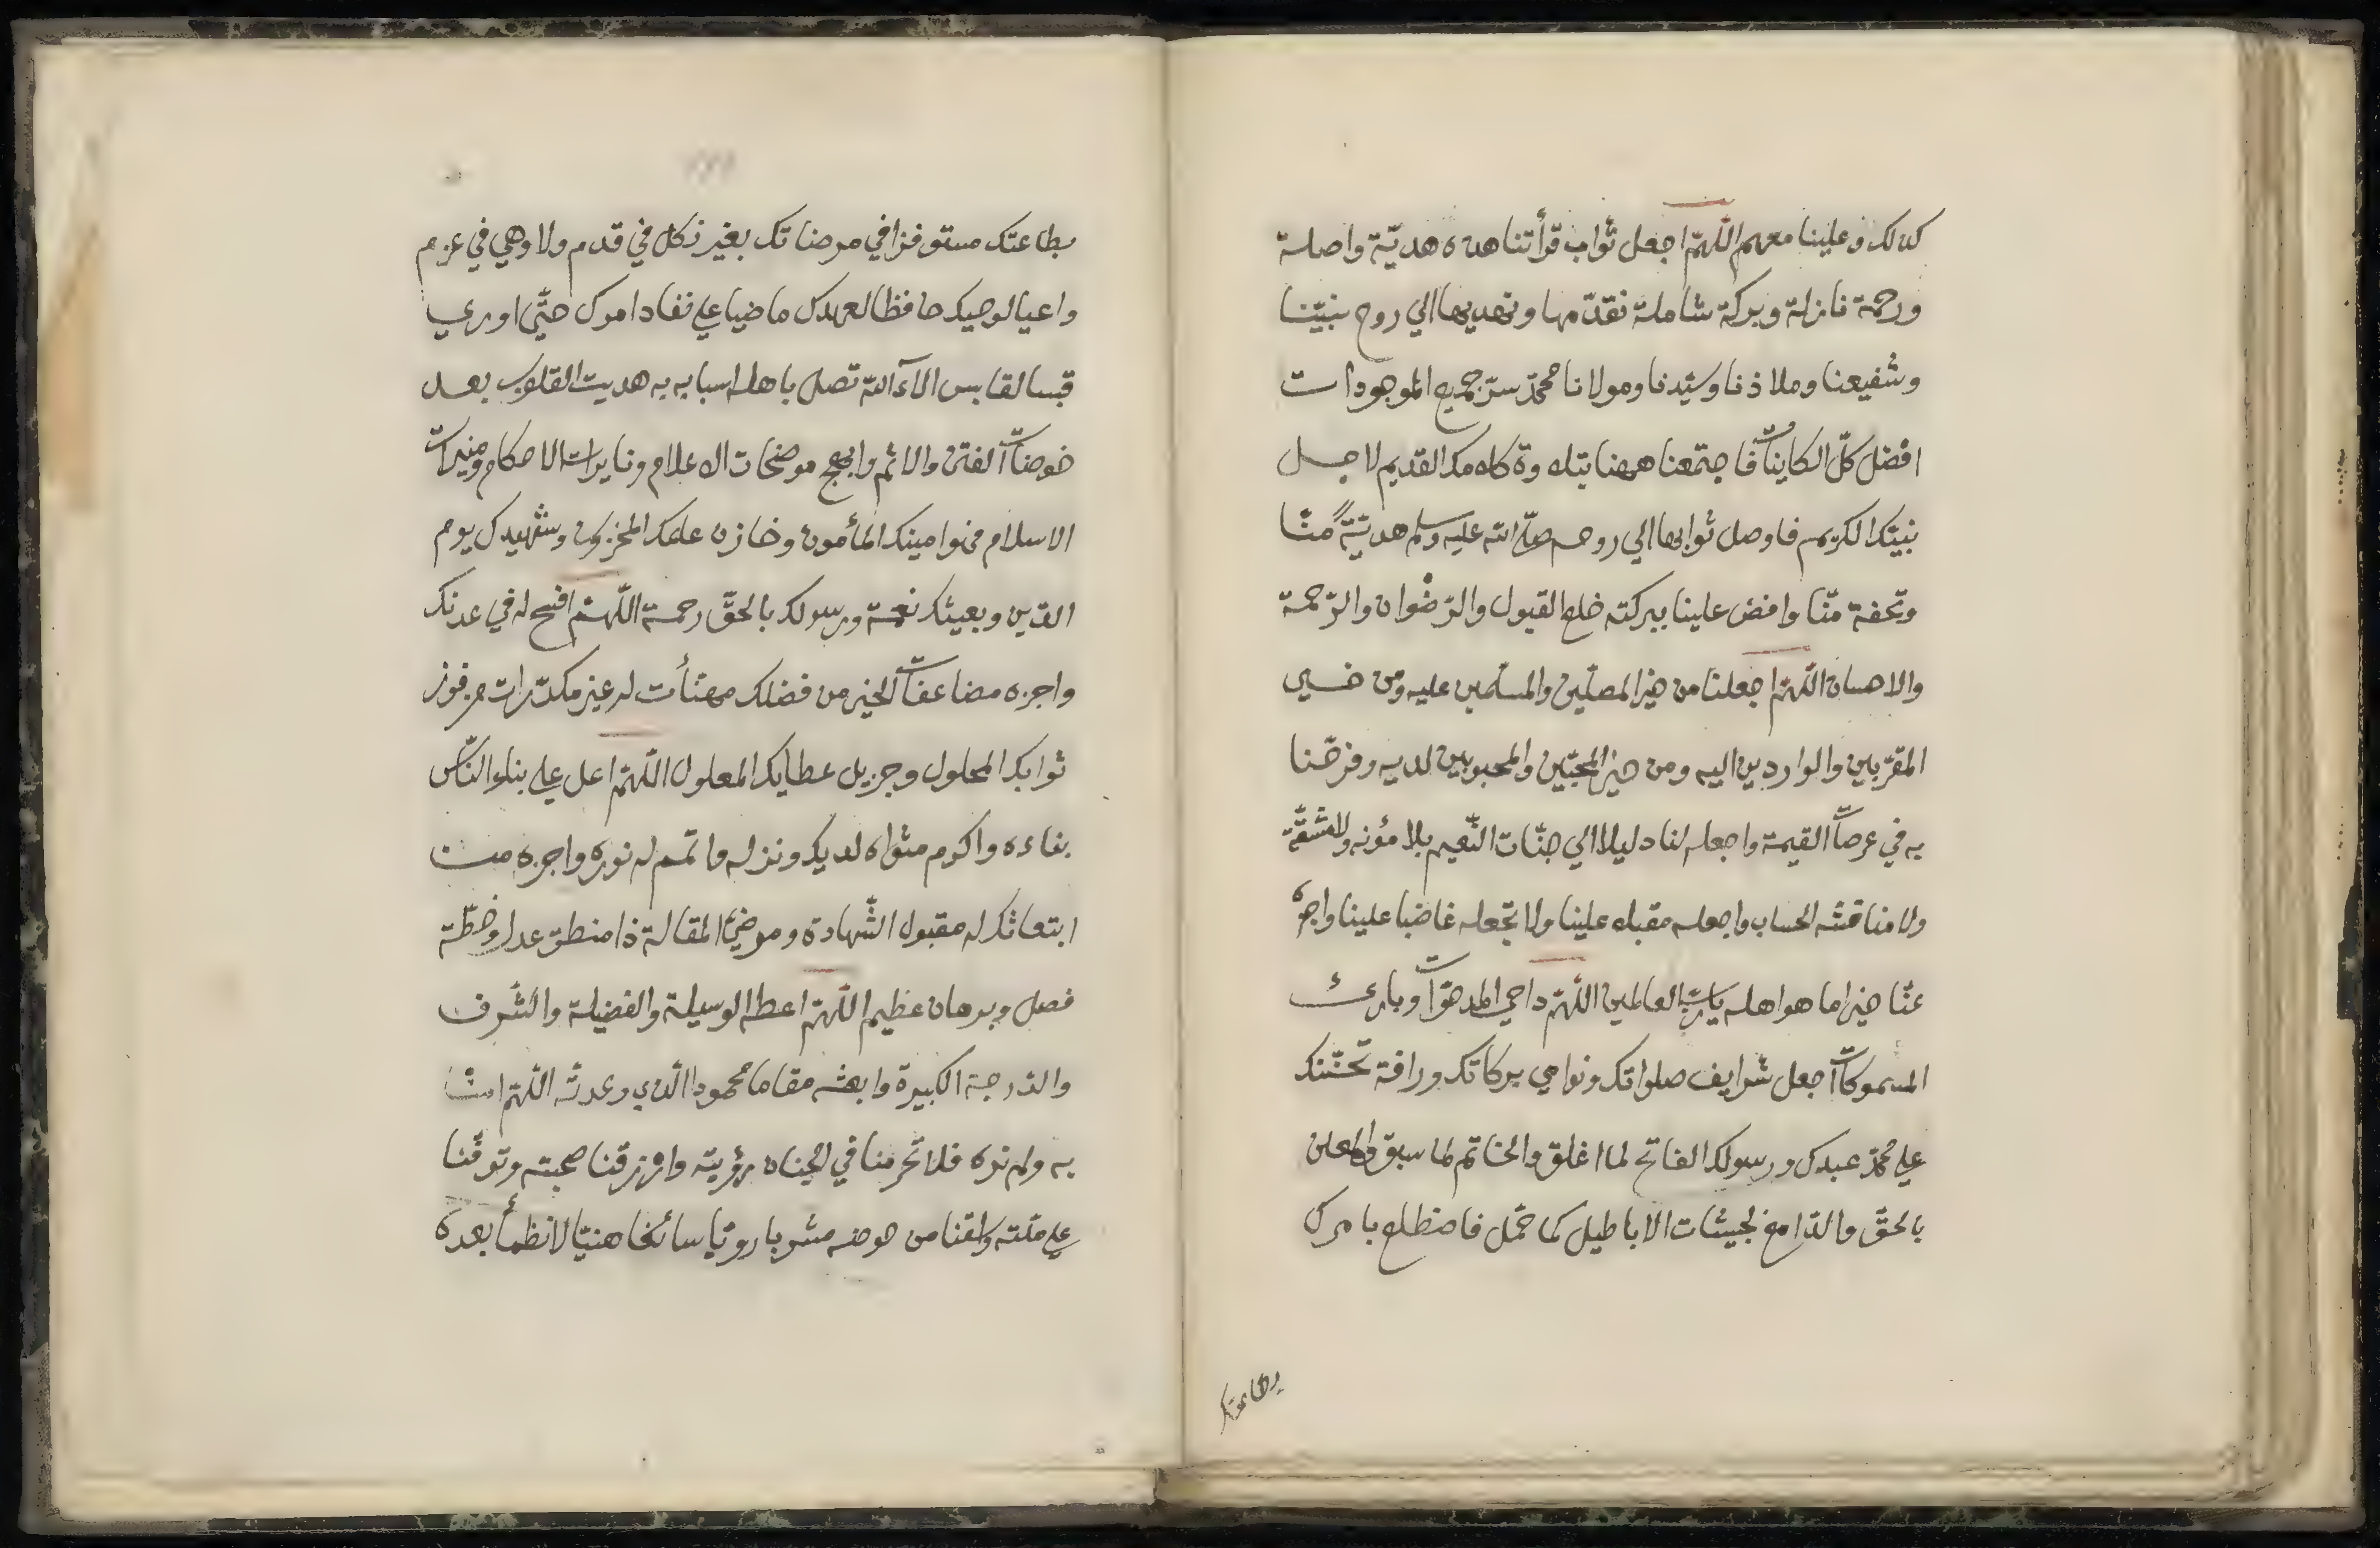 كذلك وعلينا معهم اللّهمّ اجعل ثواب قرأتنا هذه هديّة واصلة
ورحمة نازلة وبركة شاملة نقدّمها ونهديها الي روح نبيّنا
وشفيعنا وملاذنا وسيّدنا ومولانا محمّد سرّ جميع الموجودات
افضل كلّ الكاينات فاجتمعنا ههنا بتلاوة كلامك القديم لاجل
نبيّك الكريم فاوصل ثوابها الي روحه صلّي الله عليه وسلم هديّةً منّا
وتحفة منّا وافض علينا ببركته خلع القبول والرّضوان والرّحمة
والاحسان اللّهمّ اجعلنا من خير المصلّين والمسلّمين عليه ومن خير
المقرّبين والواردين اليه ومن خير المحبّين والمحبوبين لديه وفرّحنا
به في عرصات القيمة واجعله لنا دليلا الي جنّات النّعيم بلا مؤنه ولا مشقّة
ولا مناقشه الحساب واجعله مقبلا علينا ولا تجعله غاضبا علينا واجزه
عنّا خير اما هو اهله يا ربّ العالمين اللّهمّ داحي المدحوّات وبارئ
المسموكات اجعل شرايف صلواتك ونوامي بركاتك ورافة تحنّنك
علي محمّد عبدك ورسولك الفاتح لما اغلق والخاتم لما سبق والمعلن
بالحقّ والدّامغ لجيشات الاباطيل كما حمّل فاضطلع بامرك
بطاعتك
بطاعتك مستوفزا في مرضاتك بغير نكل في قدم ولا وهي في عزم
واعيا لوحيك حافظا لعهدك ماضيا علي نفاد امرك حتّي اوري
قبسا لقابس الآء الله تصل باهله اسبابه به هديت القلوب بعد
خوضات الفتن والاثم وابهج موضحات الاعلام ونايرات الاحكام ومنيرات
الاسلام فهو امينك المأمون وخازن علمك المخزون وشهيدك يوم
الدّين وبعيثك نعمة ورسولك بالحقّ رحمة اللّهمّ افسح له في عدنك
واجزه مضاعفات الخير من فضلك مهنّأت له غير مكدّرات من فوز
ثوابك المحلول وجزيل عطايك المعلول اللّهمّ اعل علي بناء النّاس
بناءه واكرم مثواه لديك ونزله واتمم له نوره واجزه من
ابتعاثك له مقبول الشّهادة ومرضيّ المقالة ذا منطق عدل وخطّة
فصل وبرهان عظيم اللّهمّ اعطه الوسيلة والفضيلة والشّرف
والدّرجة الكبيرة وابعثه مقاما محمودا الّذي وعدته اللّهمّ امنّا
به ولم نره فلا تحرمنا في الجنان رؤيته وارزقنا صحبته وتوفّنا
علي ملّته واسقنا من حوضه مشربا رويّا سائغا هنيّا لا نظمأ بعده